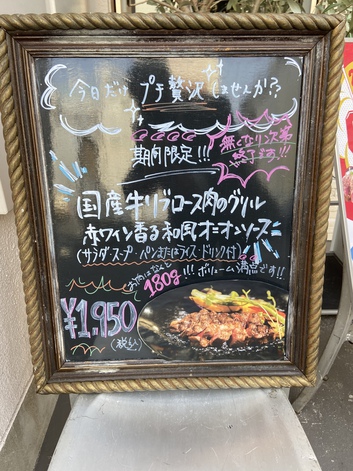 今日だけ プチ贅沢 しませんか??
期間限定!!!
無くなり次第
終了ます!!!
国産牛リブロース肉のグリル
赤ワイン香る和風オニオンソース
(サラダ・スープ・パンまたはライス・ドリンク付)
お肉はなんと
180g!!! ボリューム満点です!!
¥1,950
(税込)